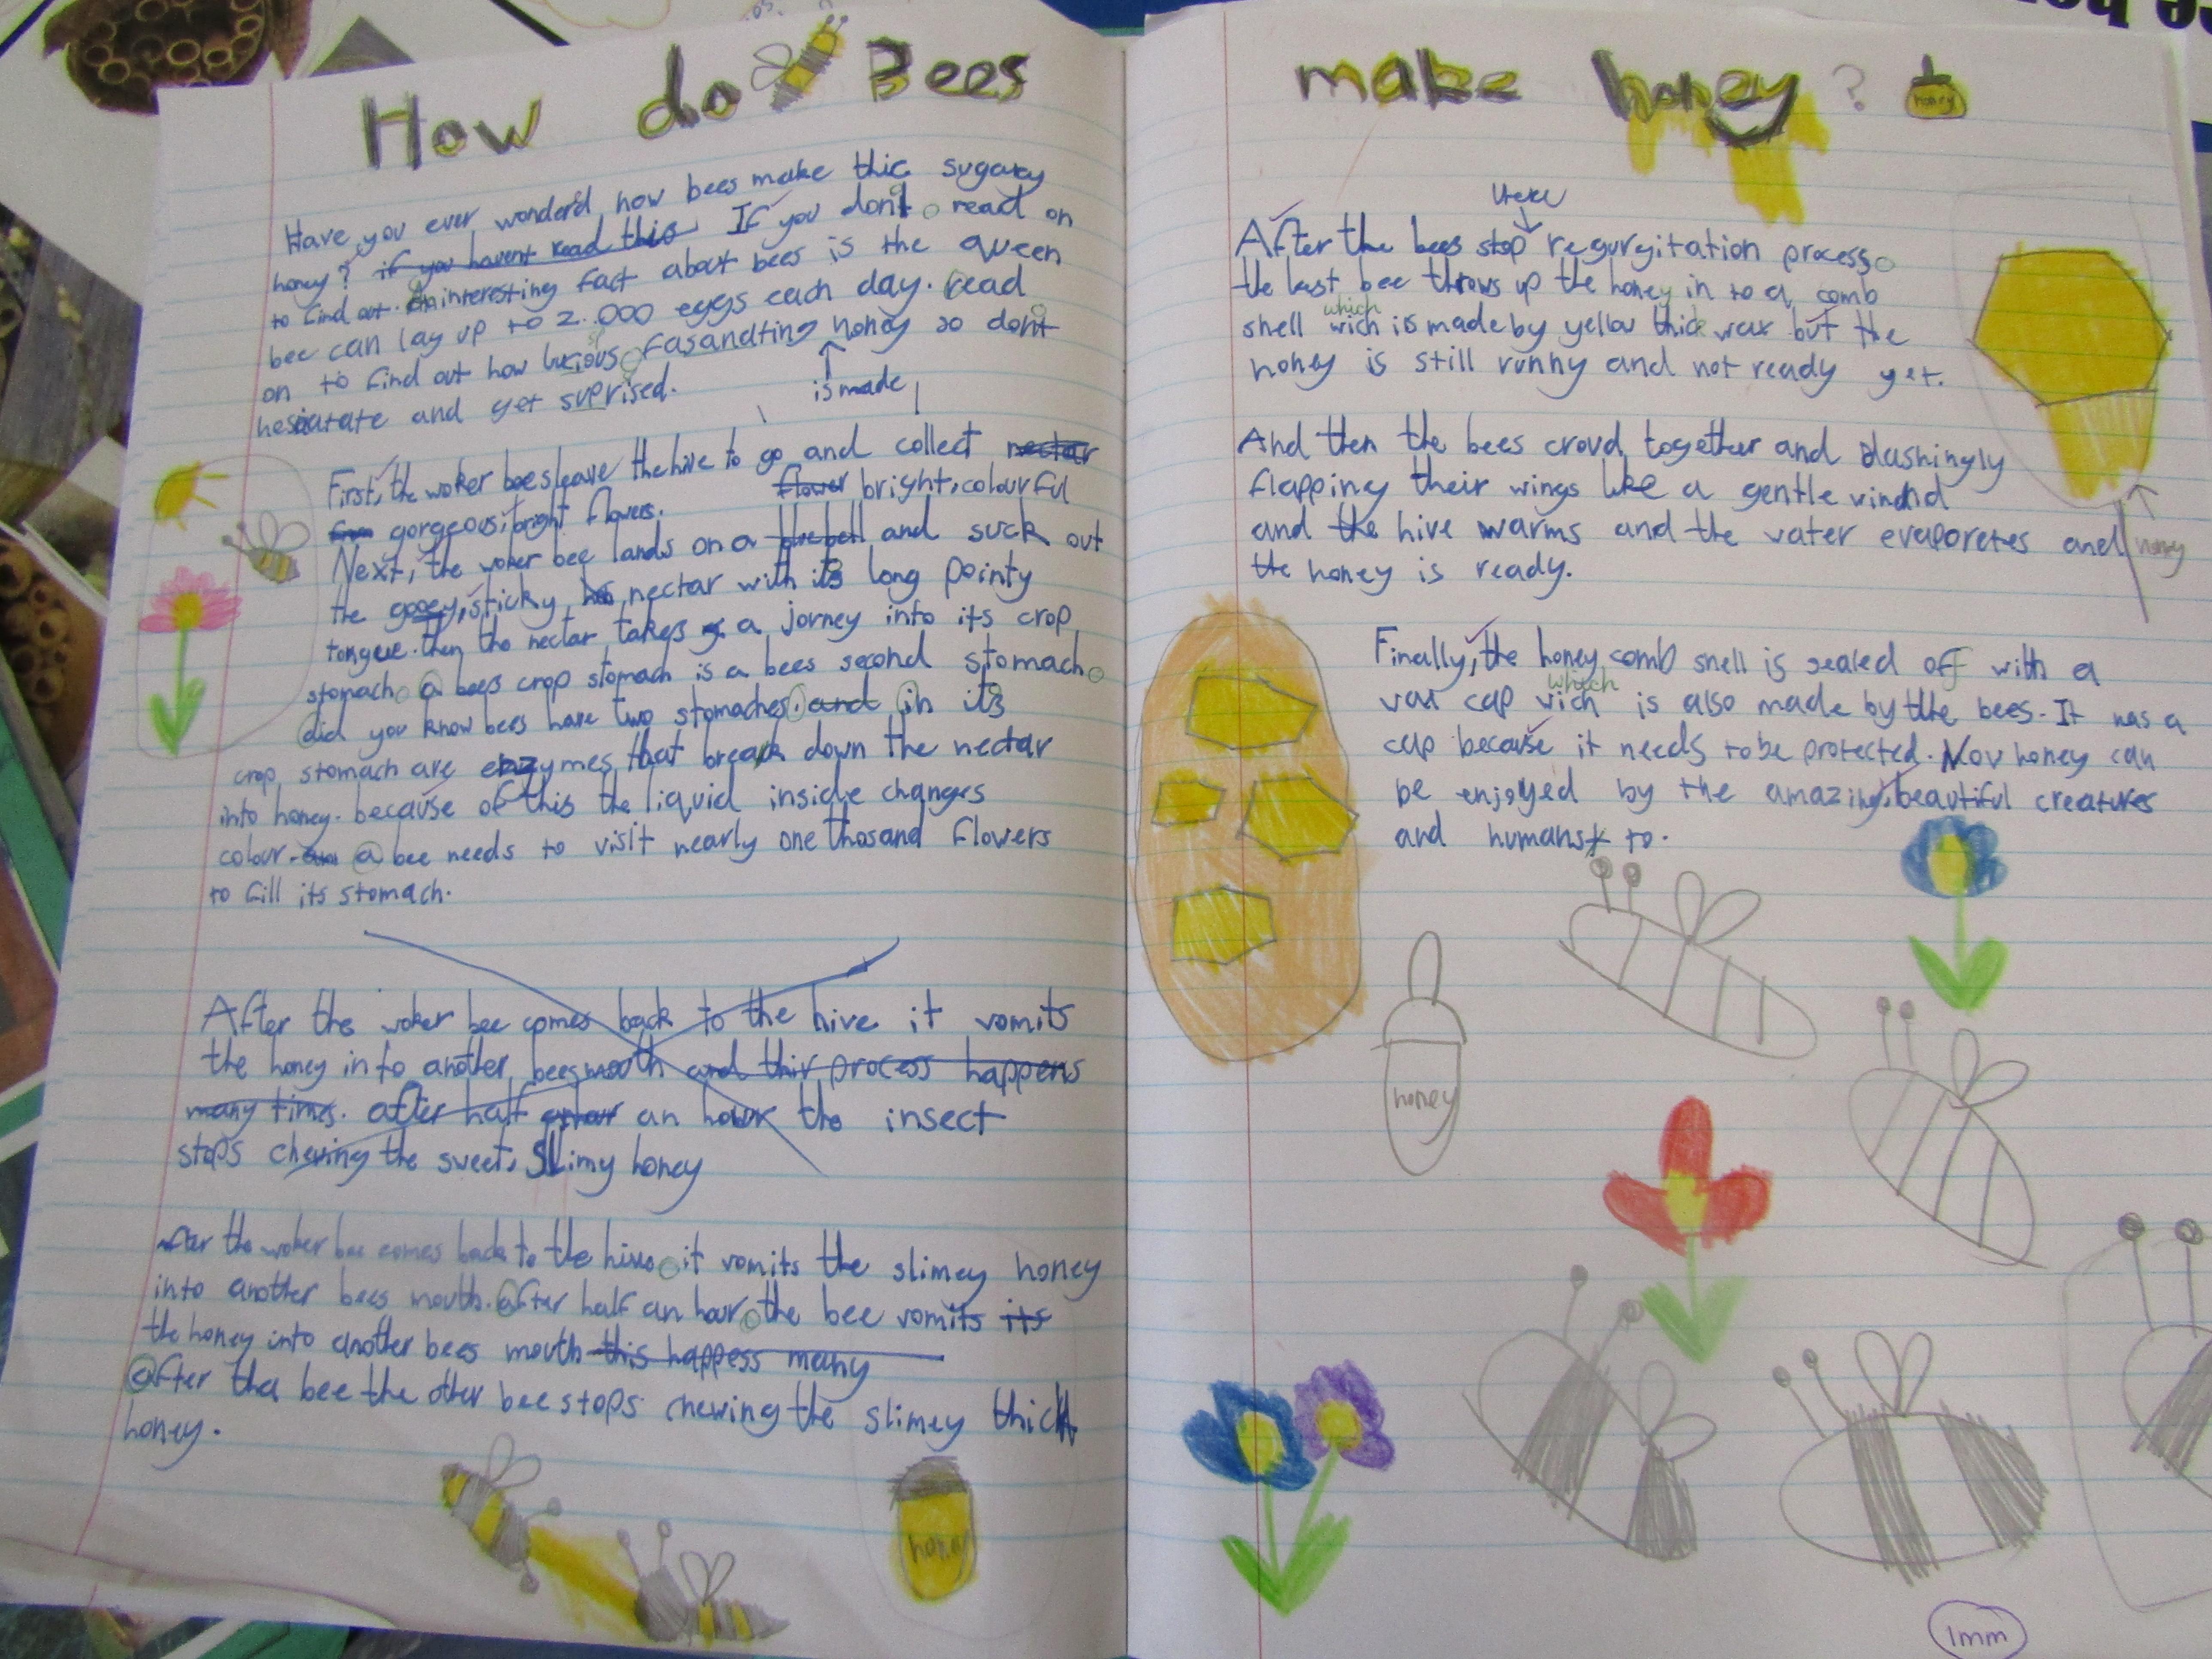 How do Bees
Have you ever wonderd how bees make thic sugary
honey? if you havent read this If you don't read on
to find out. An interesting fact about bees is the queen
bee can lay up to 2.000 eggs each day. read
on to find out how lucious fasandting honey so don't
is made
hesiatate and get suprised.
First, the woker bees leave the hive to go and collect nectar
from gorgeous, bright flowers. flower bright, colourful
Next, the woker bee lands on a bluebell and suck out
the gooey, sticky, nectar with its long pointy
tongue. then the nectar takes a jorney into its crop
stomach. a bees crop stomach is a bees second stomach.
did you know bees have two stomaches. and in its
crop stomach are enzymes that break down the nectar
into honey. because of this the liquid inside changes
colour. a bee needs to visit nearly one thosand flowers
to fill its stomach.
After the woker bee comes back to the hive it vomits
the honey in to another bees mouth and this process happens
many times. after half an hour the insect
stops chewing the sweet, slimy honey
After the woker bee comes back to the hive, it vomits the slimey honey
into another bees mouth. after half an hour, the bee vomits its
the honey into another bees mouth this happess many
after tha bee the other bee stops chewing the slimey thick
honey.
honey
make honey?
honey
After the bees stop regurgitation process,
the last bee throws up the honey in to a comb
which
shell wich is made by yellow thick wax but the
honey is still runny and not ready yet.
And then the bees crowd together and
flapping their wings like a gentle wind
and the hive warms and the water evaporetes and
the honey is ready.
honey
Finally, the honey comb shell is sealed off with a
which
wax cap wich is also made by the bees. It has a
cap because it needs to be protected. Now honey can
be enjoyed by the amazing, beautiful creatures
and humans to.
honey
1mm